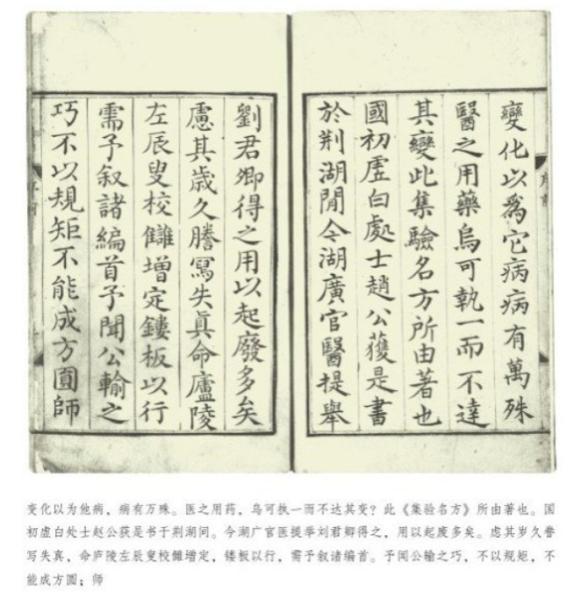 變化以爲它病病有萬殊
醫之用藥烏可執一而不達
其變此集驗名方所由著也
國初虛白處士趙公獲是書
於荆湖閒今湖廣官醫提舉
劉君卿得之用以起廢多矣
慮其歳久謄寫失眞命廬陵
左辰叟校讎增定鏤板以行
需予叙諸編首予聞公輸之
巧不以規矩不能成方圓師
变化以为他病，病有万殊。医之用药，乌可执一而不达其变？此《集验名方》所由著也。国
初虚白处士赵公获是书于荆湖间。今湖广官医提举刘君卿得之，用以起废多矣。虑其岁久誊
写失真，命庐陵左辰叟校雠增定，镂板以行，需予叙诸编首。予闻公输之巧，不以规矩，不
能成方圆；师